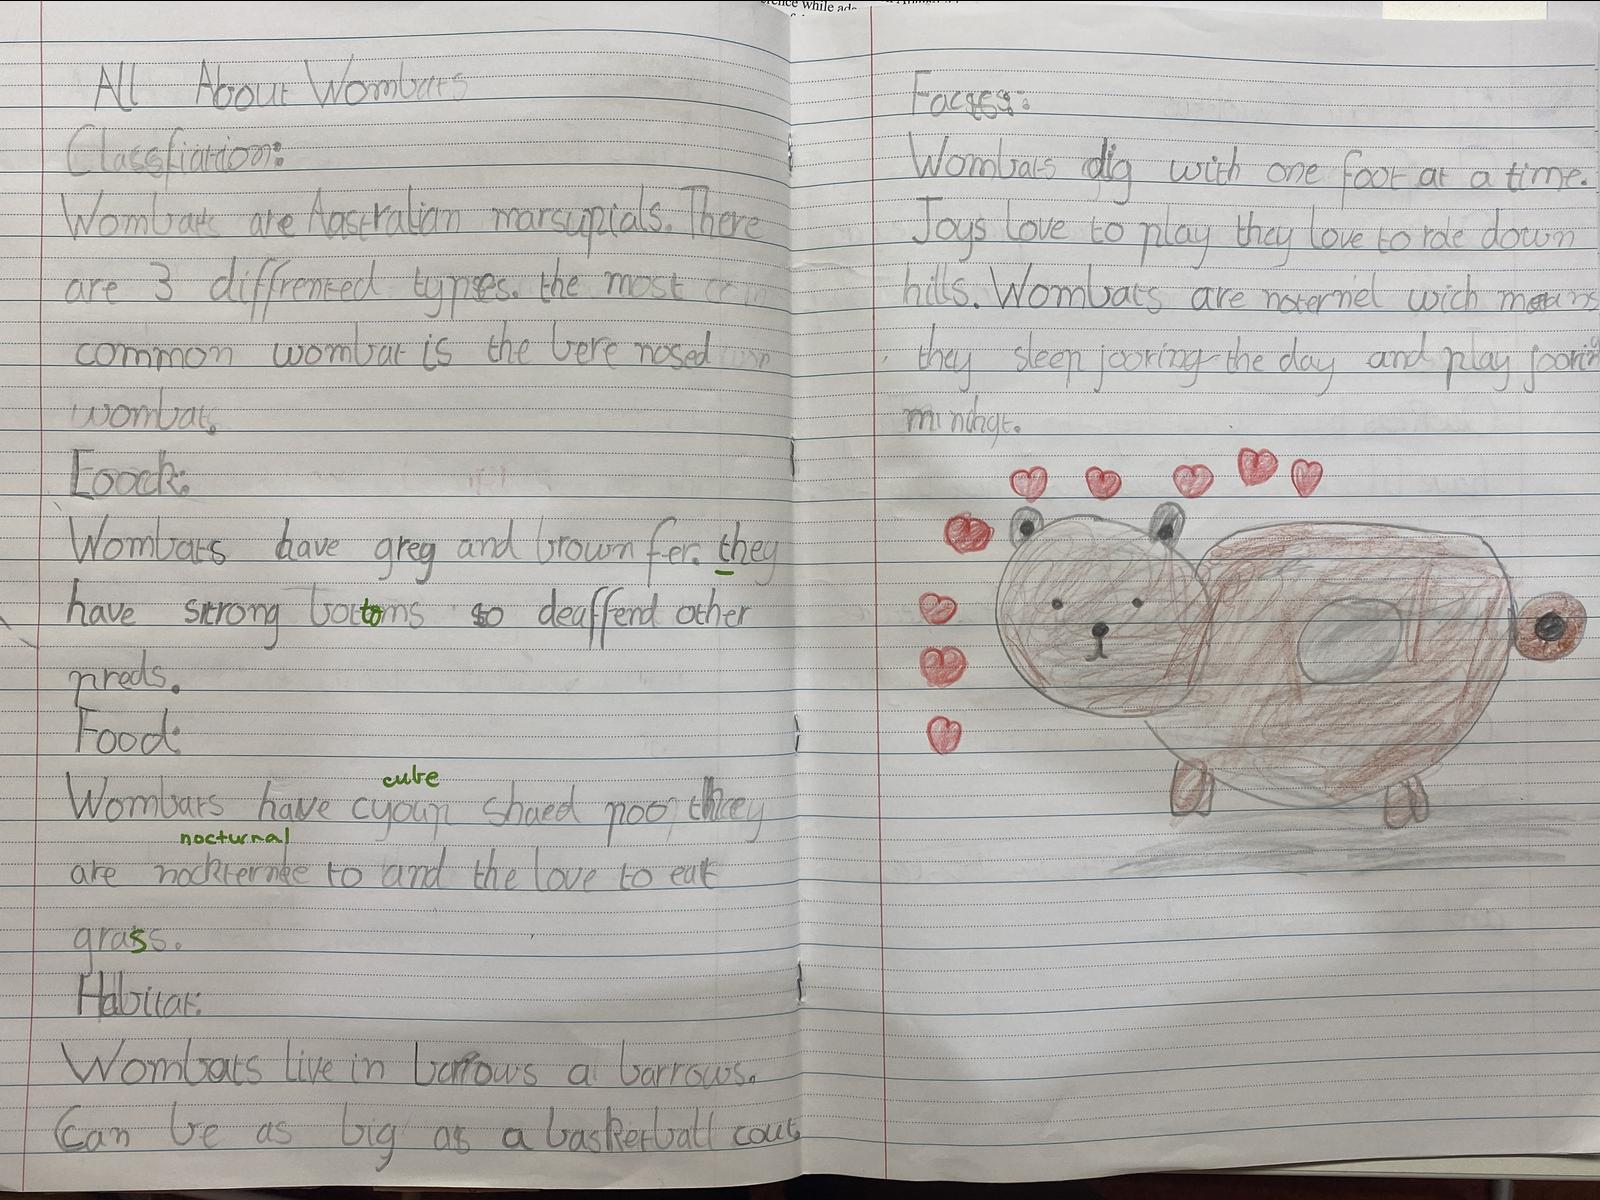 All About Wombats
Classfiation:
Wombats are Aastralian marsupials. There
are 3 diffrented types. the most
common wombat is the bere nosed
wombat.
Loock:
Wombats have greg and brown fer. they
have strong bottoms so deaffend other
preds.
Food:
cube
Wombats have cyoup shaed poo, they
nocturnal
are to and the love to eat
grass.
Habitat:
Wombats live in barrows a barrows.
Can be as big as a basketball cout
Wombats dig with one foot at a time.
Joys love to play they love to role down
hills. Wombats are noternel wich means
they sleep jooring the day and play jooring